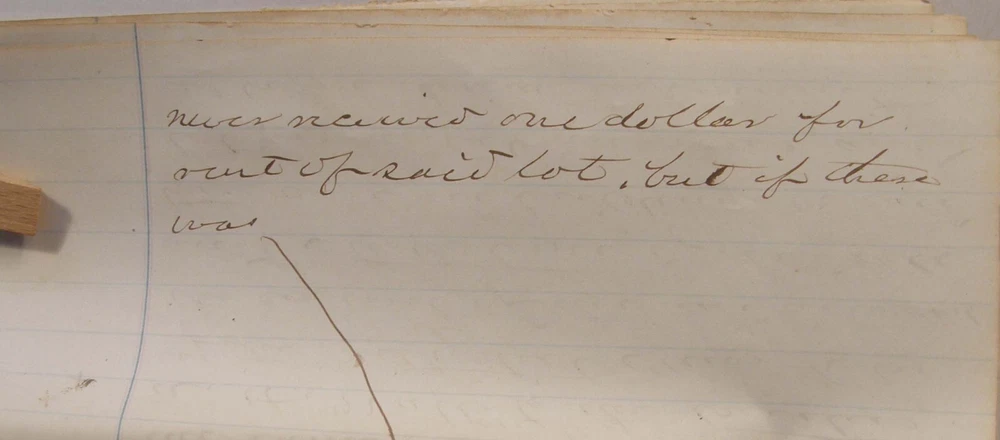 never received one dollar for
rent of said lot, but if there
was